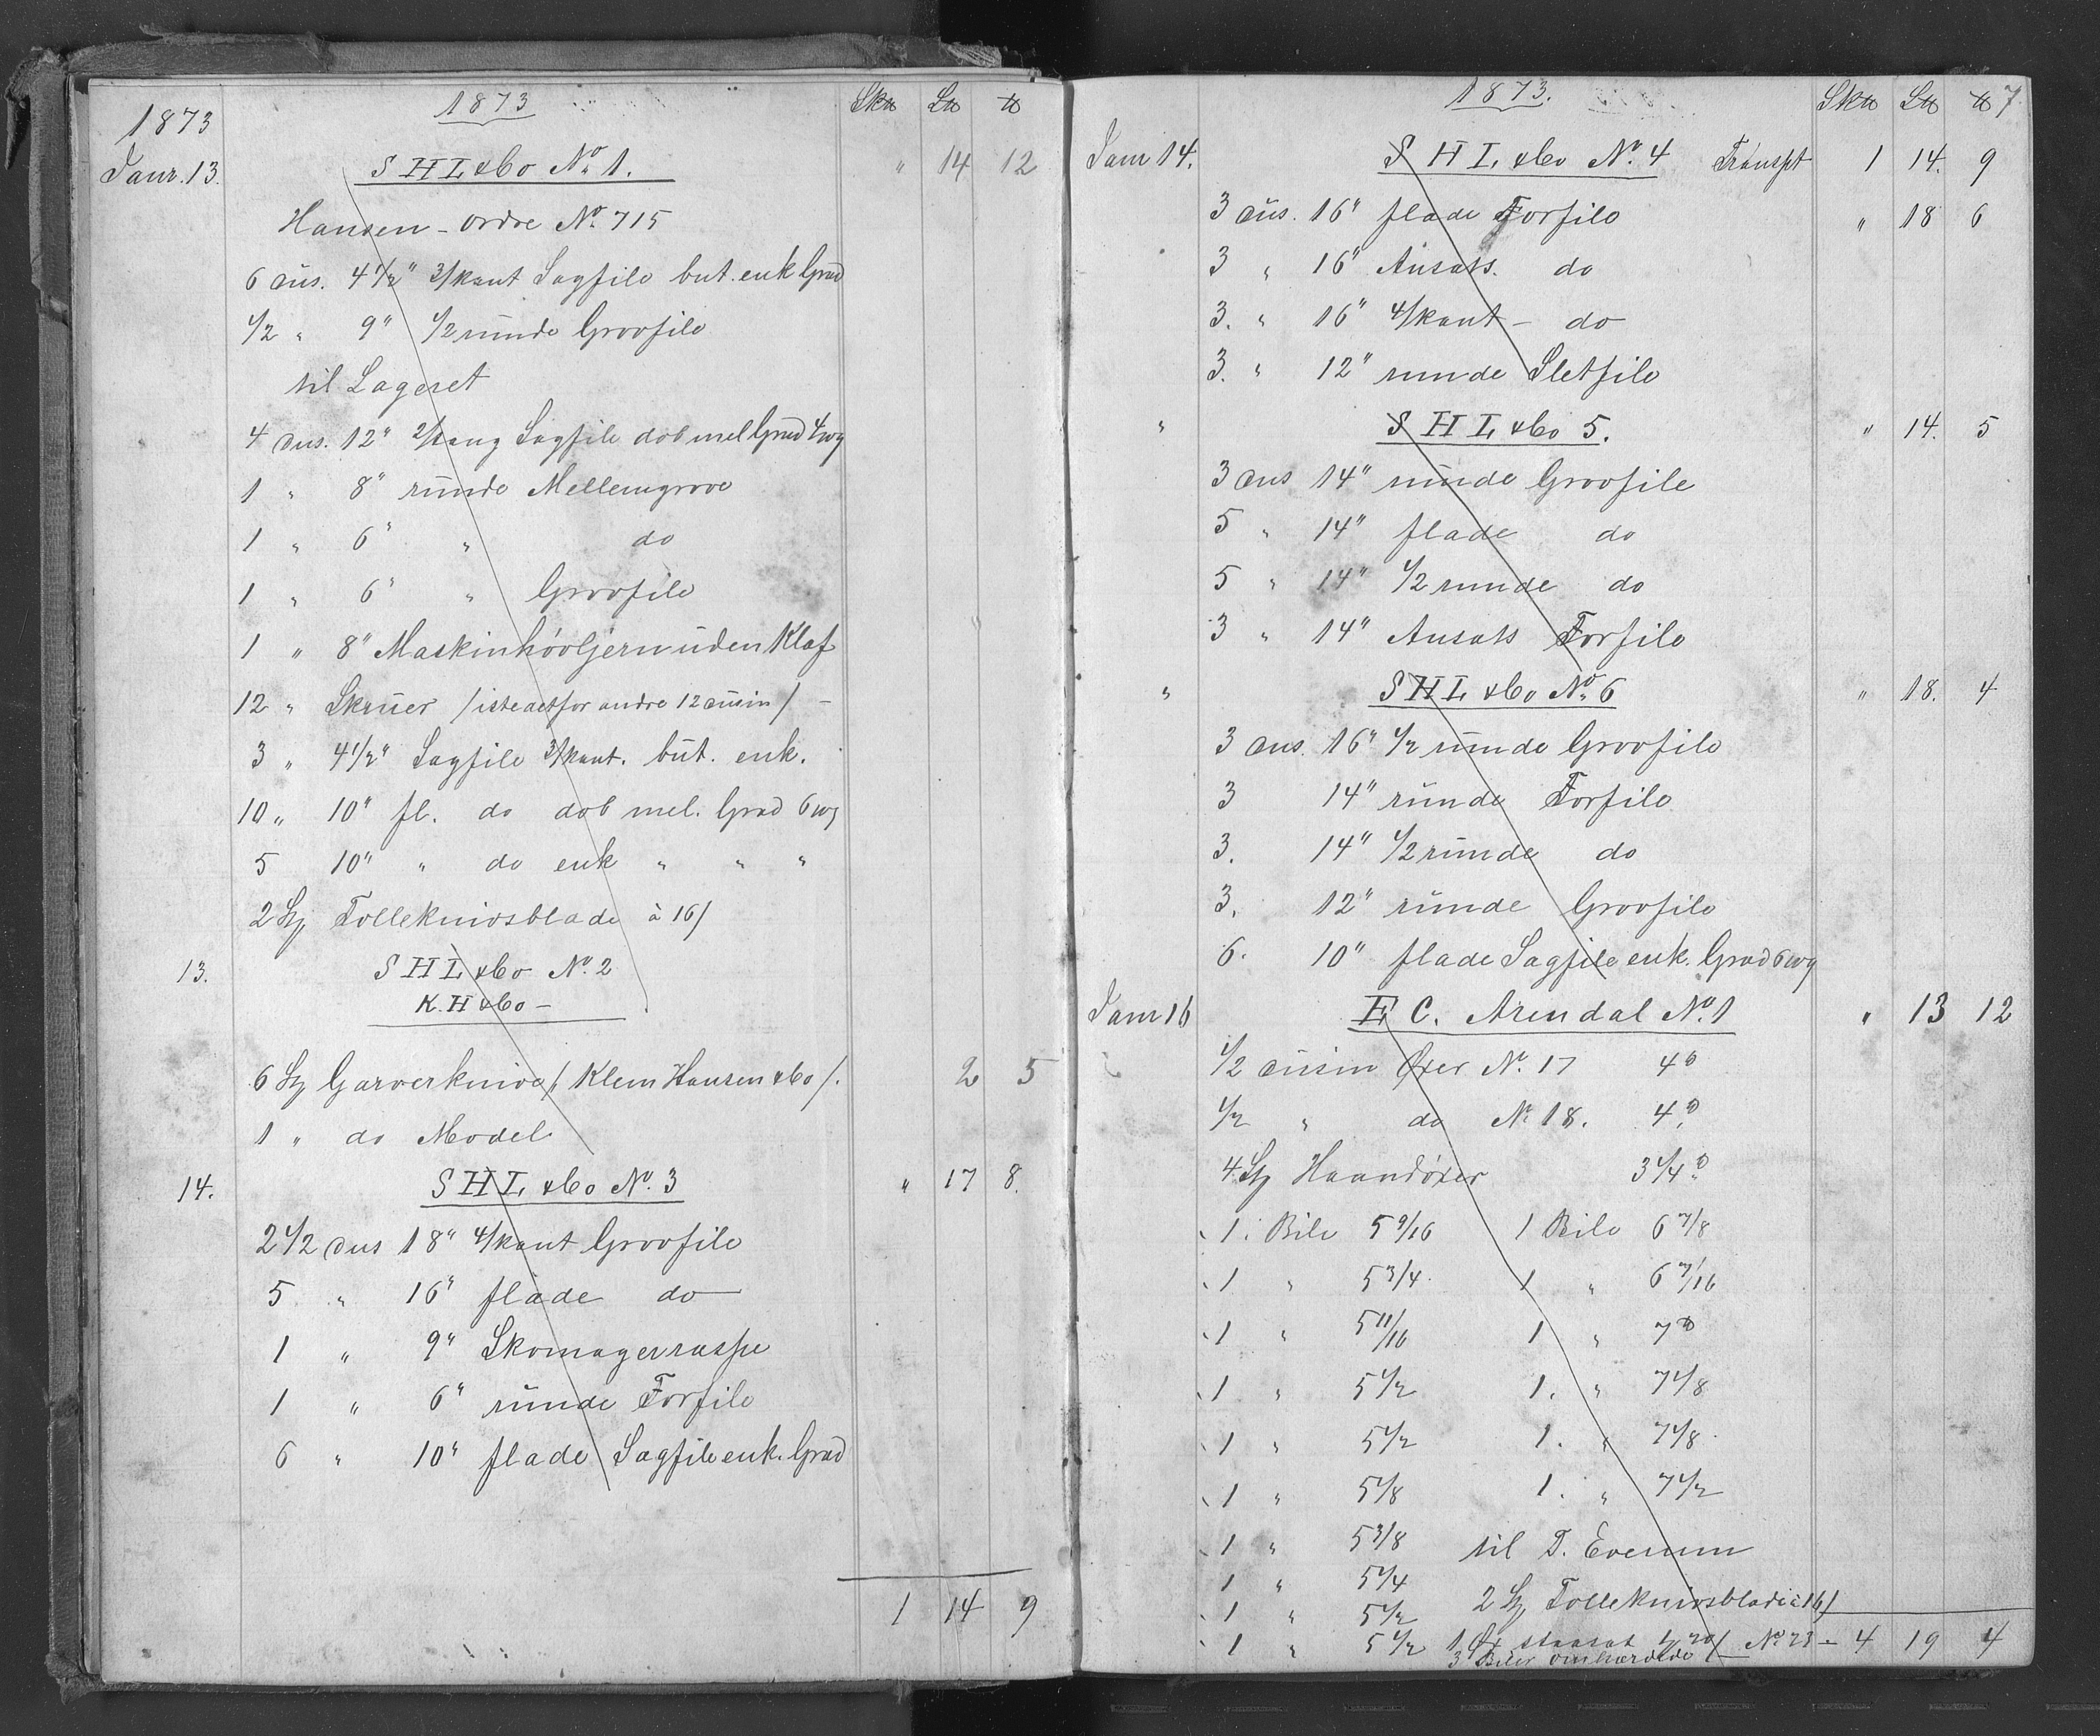 1873 Sk℔ L℔ ℔
1873
Janr. 13. S H L & Co No 1. " 14 12
Hansen - Ordre No 715
6 dus. 4 1/2" 3/kant Sagfile but. enk Grad
1/2 " 9" 1/2 runde Groofile
til Lageret
4 dus. 12" Sagfile dob mel Grad
1 " 8" runde Mellemgrove
1 " 6" " do
1 " 6" " Groofile
1 " 8" Maskinhøvljern uden Klaf
12 " Skruer /istedetfor andre 12 dusin/ -
3 " 4 1/2" Sagfile 3/kant. but. enk.
10 " 10" fl. do dob mel. Grad
5 10" " do enk " " "
2 St Tolleknivsblade à 16/
13. S H L & Co No. 2
K. H & Co -
6 St Garverknive /: Klem Hansen & Co /. 2 5
1 " do Model
14. S H L & Co No. 3 " 17 8.
2 1/2 dus 18" 4/kant Groofile
5 " 16" flade do
1 " 9" Skomagerraspe
1 " 6" runde Forfile
6 " 10" flade Sagfile enk. Grad
1 14 9
1873. Sk℔ L℔ ℔ 7
Janr 14. S H L & Co No. 4 Transpt 1 14. 9
3 dus. 16" flade Forfile " 18 6
3 " 16" Ansats. do
3. " 16" 4/kant - do
3. " 12" runde Sletfile
" S H L & Co 5. " 14. 5
3 dus 14" runde Groofile
5 " 14" flade do
5 " 14" 1/2 runde do
3 " 14" Ansats Forfile
" S H L & Co No 6 " 18. 4
3 dus. 16" 1/2 runde Groofile
3 14" runde Forfile
3. 14" 1/2 runde do
3. 12" runde Groofile
6. 10" flade Sagfile enk. Grad
Janr 16 E C. Arendal No. 1 " 13 12
1/2 dusin Øxer No. 17 4℔
1/2 " do No 18. 4℔
4 St Haandøxer 3 1/4 ℔
1 Bile 5 9/16 1 Bile 6 7/8
1 " 5 3/4 1 " 6 7/16
1 " 5 11/16 1 " 7℔
1 " 5 1/2 1. " 7 1/8
1 " 5 1/2 1. " 7 1/8
1 " 5 1/8 1. " 7 1/2
1 " 5 3/8 til T. Evensen
1 " 5 1/4
1 " 5 1/2 2 St Tolleknivsblade à 16/
1 " 5 1/2 1 Øx No 23 - 4 19 4
3 Biler omhærdede